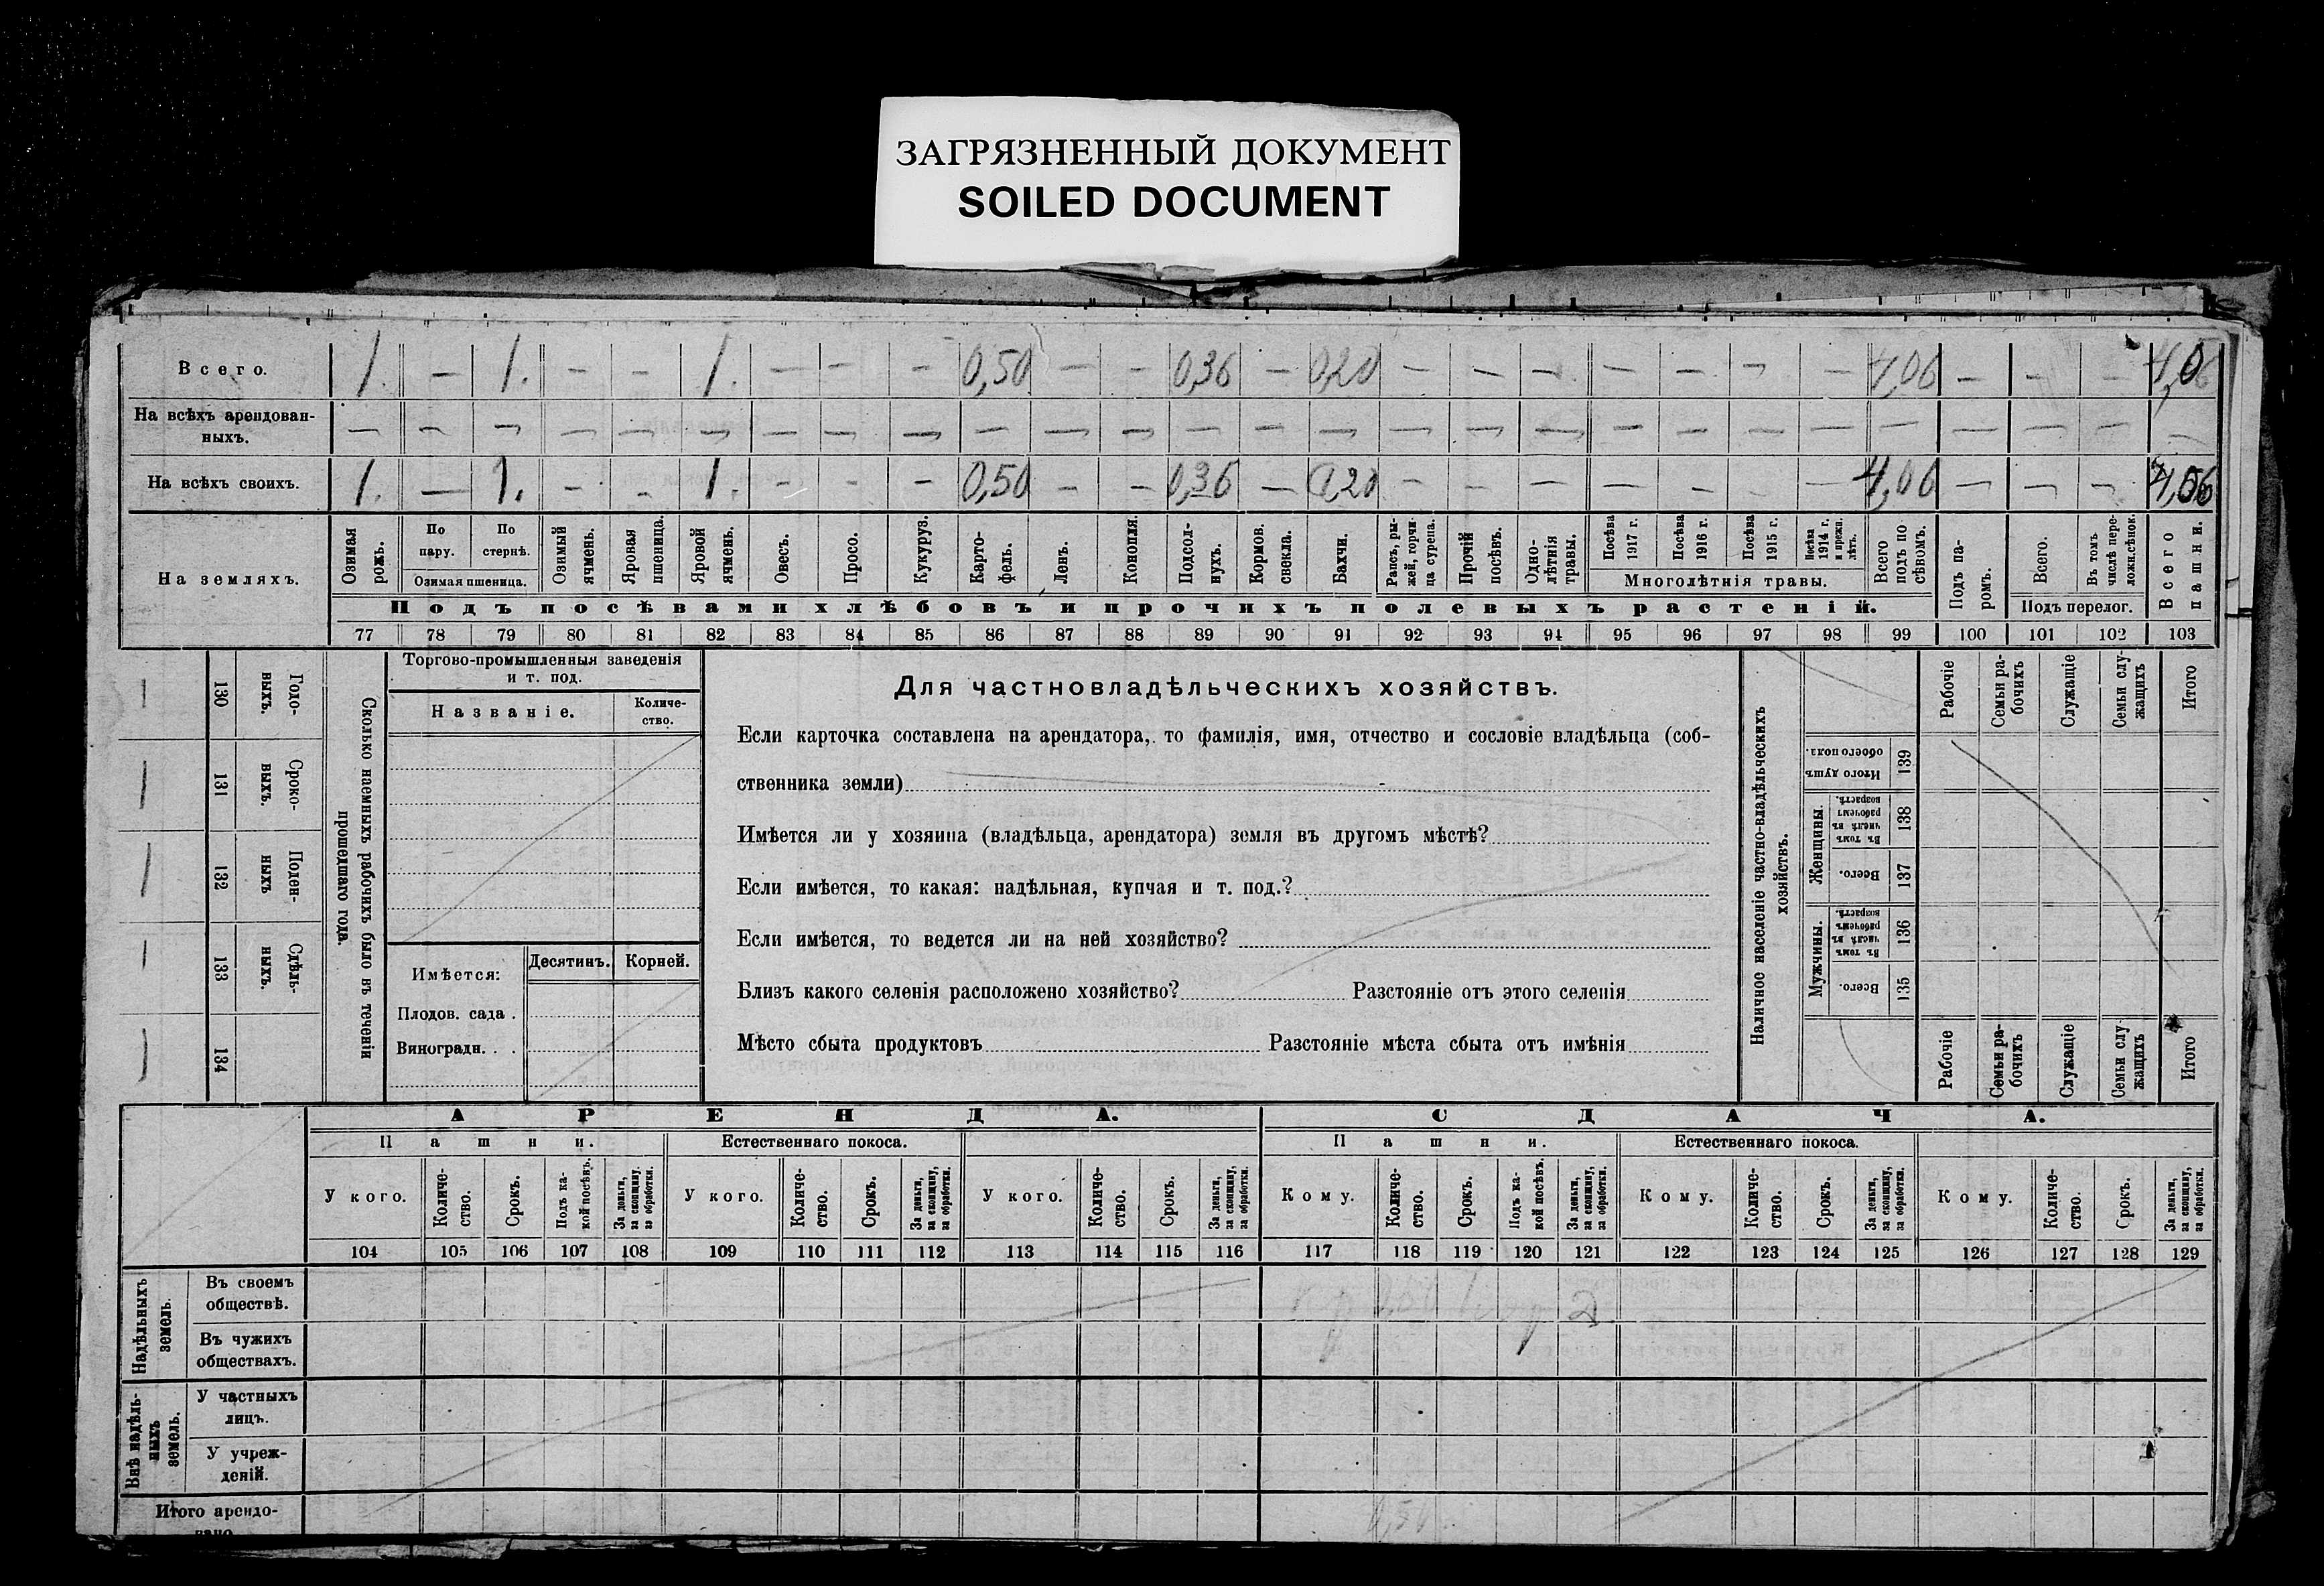 ЗАГРЯЗНЕННЫЙ ДОКУМЕНТ
SOILED DOCUMENT
Всего. 1. — 1. — — 1. — — — 0,50 — — 0,36 — 0,20 — — — — — — — 4,06 — — — 4,06
На всѣхъ арендован-
ныхъ. — — — — — — — — — — — — — — — — — — — — — — — — — — —
На всѣхъ своихъ. 1. — 1. — — 1. — — — 0,50 — — 0,36 — 0,20 — — — — — — — 4,06 — — — 4,06
На земляхъ.
Озимая рожь.
По пару.
По стернѣ.
Озимая пшеница.
Озимый ячмень.
Яровая пшеница.
Яровой ячмень.
Овесъ.
Просо.
Кукуруз.
Карто-
фель.
Ленъ.
Конопля.
Подсол-
нухъ.
Кормов. свекла.
Бахчи.
Рапсъ, ры-
жей, горчи-
ца сурепа.
Прочій посѣвъ.
Одно-
лѣтнія травы.
Посѣва 1917 г.
Посѣва 1916 г.
Посѣва 1915 г.
Посѣва 1914 г. и прежн. лѣтъ.
Многолѣтнія травы.
Всего подъ по
сѣвомъ.
Подъ па-
ромъ.
Всего.
Въ томъ числѣ пере-
ложн.сѣнок.
Подъ перелог.
Всего пашни.
Подъ посѣвами хлѣбовъ и прочихъ полевыхъ растеній.
77 78 79 80 81 82 83 84 85 86 87 88 89 90 91 92 93 94 95 96 97 98 99 100 101 102 103
130 Годо-
выхъ.
131 Сроко-
выхъ.
132 Поден-
ныхъ
133 Сдѣль-
ныхъ.
134
Сколько наемныхъ рабочихъ было въ теченіи
прошедшаго года.
Торгово-промышленныя заведенія
и т. под.
Названіе.
Количе-
ство.
Имѣется:
Десятинъ.
Корней.
Плодов. сада .
Виноградн. . .
Для частновладѣльческихъ хозяйствъ.
Если карточка составлена на арендатора, то фамилія, имя, отчество и сословіе владѣльца (соб-
ственника земли)
Имѣется ли у хозяина (владѣльца, арендатора) земля въ другомъ мѣстѣ?
Если имѣется, то какая: надѣльная, купчая и т. под.?
Если имѣется, то ведется ли на ней хозяйство?
Близъ какого селенія расположено хозяйство? Разстояніе отъ этого селенія
Мѣсто сбыта продуктовъ Разстояніе мѣста сбыта отъ имѣнія
Наличное населеніе частно-владѣльческихъ
хозяйствъ.
Рабочіе
Семьи ра-
бочихъ
Служащіе
Семьи слу-
жащихъ
Итого
Итого душъ обоего пола. 139
Женщины.
Въ томъ числѣ въ рабочемъ возрастѣ. 138
Всего. 137
Мужчины.
Въ томъ числѣ въ рабочемъ возрастѣ. 136
Всего. 135
Рабочіе
Семьи ра-
бочихъ
Служащіе
Семьи слу-
жащихъ
Итого
АРЕНДА.
СДАЧА.
Пашни.
Естественнаго покоса.
Пашни.
Естественнаго покоса.
У кого.
Количе-
ство.
Срокъ.
Подъ ка-
кой посѣвъ.
За деньги, за скопщину, за обработки.
У кого.
Количе-
ство.
Срокъ.
За деньги, за скопщину, за обработки.
У кого.
Количе-
ство.
Срокъ.
За деньги, за скопщину, за обработки.
Кому.
Количе-
ство.
Срокъ.
Подъ ка-
кой посѣвъ.
За деньги, за скопщину, за обработки.
Кому.
Количе-
ство.
Срокъ.
За деньги, за скопщину, за обработки.
Кому.
Количе-
ство.
Срокъ.
За деньги, за скопщину, за обработки.
104 105 106 107 108 109 110 111 112 113 114 115 116 117 118 119 120 121 122 123 124 125 126 127 128 129
Надѣльныхъ земель.
Въ своемъ
обществѣ.
Въ чужихъ
обществахъ.
Внѣ надѣль-
ныхъ земель.
У частныхъ
лицъ.
У учреж-
деній.
Итого арендо-
вано